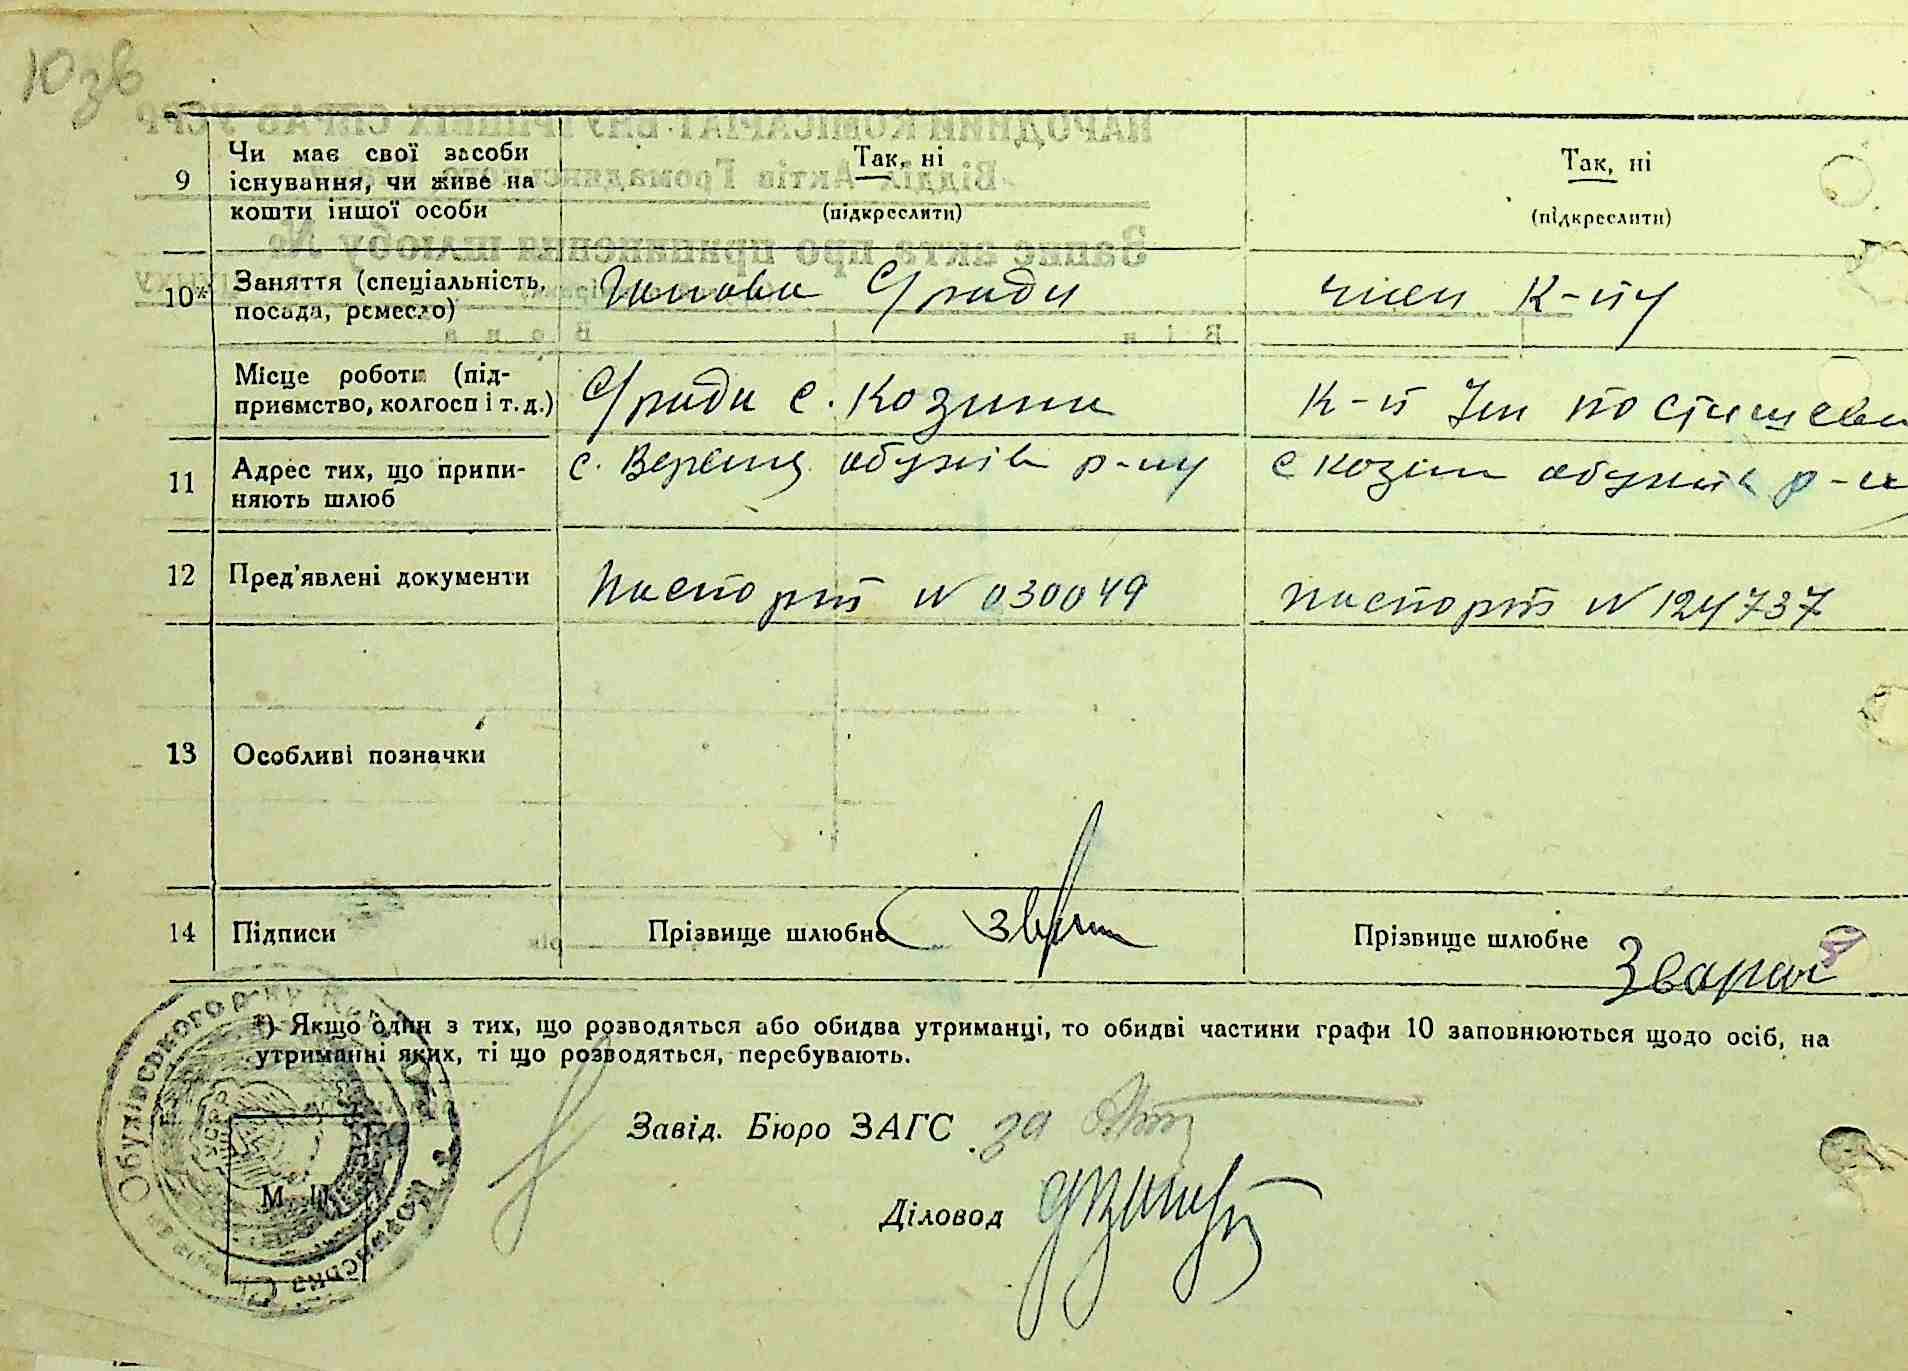 Юзв
9
Чи має свої засоби існування, чи живе на кошти іншої особи
Так, ні
(підкреслити)
Так, ні
(підкреслити)
10*
Заняття (спеціальність, посада, ремесло)
Голова С/ради
член К-пу
Місце роботи (під-
приємство, колгосп і т. д.)
С/рада с. Козини
К-п Ім Постишева
11
Адрес тих, що припи-
няють шлюб
с. обухів р-ну
с Козин обухів р-н
12
Пред'явлені документи
паспорт N 030049
паспорт N 124737
13
Особливі позначки
14
Підписи
Прізвище шлюбне
Прізвище шлюбне
*) Якщо один з тих, що розводяться або обидва утриманці, то обидві частини графи 10 заповнюються щодо осіб, на
утриманні яких, ті що розводяться, перебувають.
Завід. Бюро ЗАГС за
Діловод
М. П.
Обухівського р-ну
УСРР